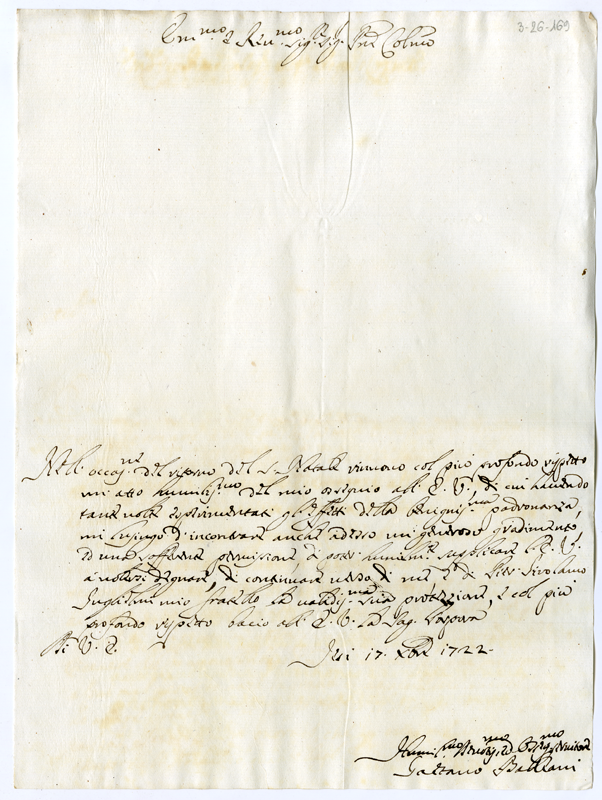 3-26-169
Em.mo e Rev.mo Sig. Sig. Pne Colmo
Nell'occas.ne del ritorno del S. Natale rinnovo col più profondo rispetto
un atto humiliss.mo del mio ossequio all'E. V., di cui havendo
tante volte esperimentati gl'effetti della benigniss.ma padronanza,
mi lusingo d'incontrare anche adesso un generoso gradimento
ed una sofferente permissione, di poter humilm.te supplicare l'E. V.
a volersi degnare, di continuare verso di me, e di Pier Girolamo
Guglielmi mio fratello la validiss.ma sua protezione, e col più
profondo rispetto bacio all'E. V. la Sag. Porpora
Di V. E.
Jesi 17. Xbre 1722.
Humiliss.mo Devotiss.mo Obligatiss.mo Servitore
Gaetano